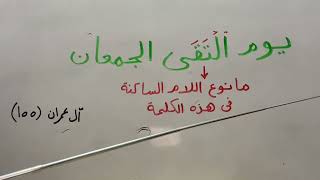 يوم الْتَقَى الجمعان
ما نوع اللام الساكنة
في هذه الكلمة
آل عمران (١٥٥)